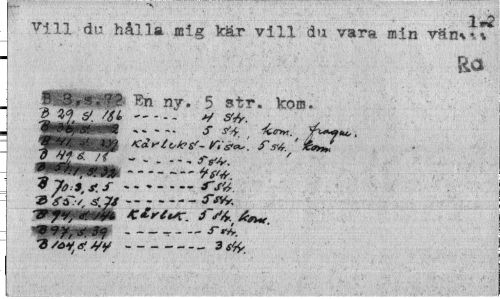 1-2
Vill du hålla mig kär vill du vara min vän...
Ra
B 8, s. 72 En ny. 5 str. kom.
B 29, s. 186 ----- 4 str.
B 36, s. 2 ----- 5 str., kom., fragm.
B 41, s. 239 Kärleks-Visa. 5 str., kom
B 49 s. 18 ------- 5 str.
B 57:1, s. 32 ------- 4 str.
B 70:3, s. 5 ------- 5 str.
B 85:1, s. 78 ------- 5 str.
B 94, s. 146 Kärlek. 5 str., kom.
B 97, s. 39 ------- 5 str.
B 104, s. 44 -------- 3 str.